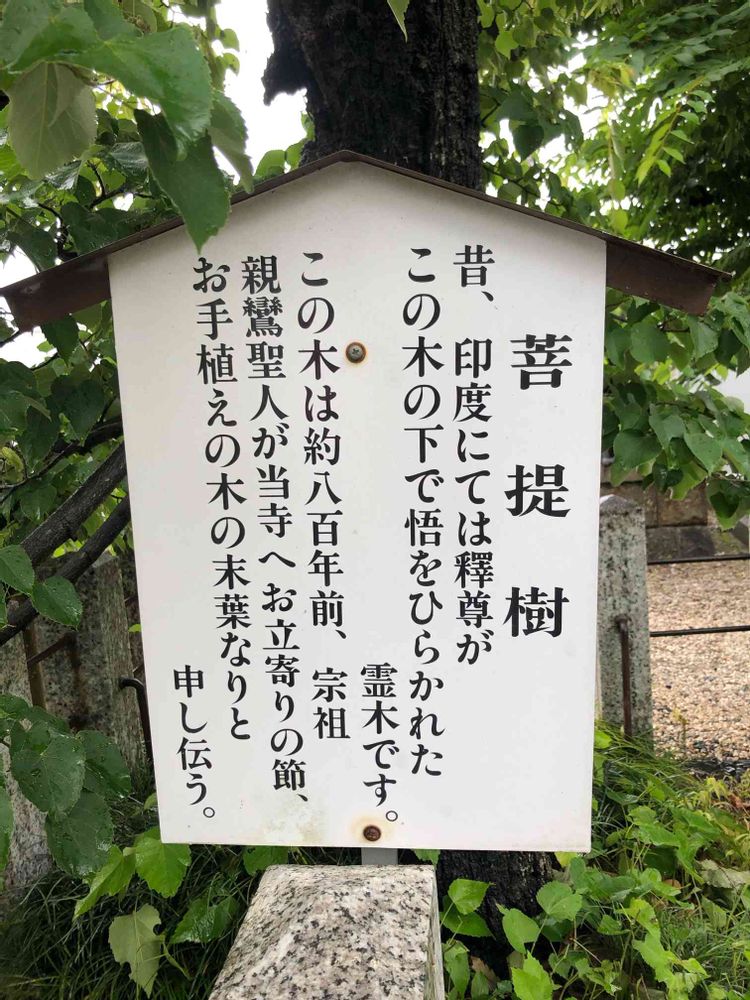 菩提樹
昔、印度にては釋尊が
この木の下で悟をひらかれた
霊木です。
この木は約八百年前、宗祖
親鸞聖人が当寺へお立寄りの節、
お手植えの木の末葉なりと
申し伝う。